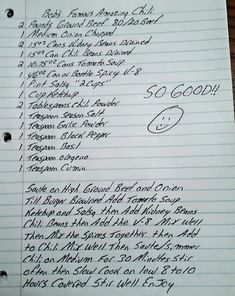 Bob's Famous Amazing Chili
2 Pounds Ground Beef 80/20 Beef
1 Medium Onion Chopped
2 15oz Cans Kidney Beans Drained
2 15oz Can Chili Beans Drained
2 10.75oz Cans Tomato Soup
1 46oz Can or Bottle Spicy V-8
1 Pint Salsa "2 Cups"
1 Cup Ketchup
2 Tablespoons Chili Powder
1 Teaspoon Season Salt
1 Teaspoon Garlic Powder
1 Teaspoon Black Pepper
1 Teaspoon Basil
1 Teaspoon Oregeno
1 Teaspoon Cumin
SO GOOD!!
Saute on High Ground Beef and Onion
Till Burger Browned Add Tomato Soup
Ketchup and Salsa then Add Kidney Beans
Chili Beans then Add the V-8 Mix Well
Then Mix the Spices Together then Add
to Chili Mix Well Then Saute/Simmer
Chili on Medium For 30 Minutes Stir
often then Slow Cook on low 8 to 10
Hours Covered Stir Well Enjoy